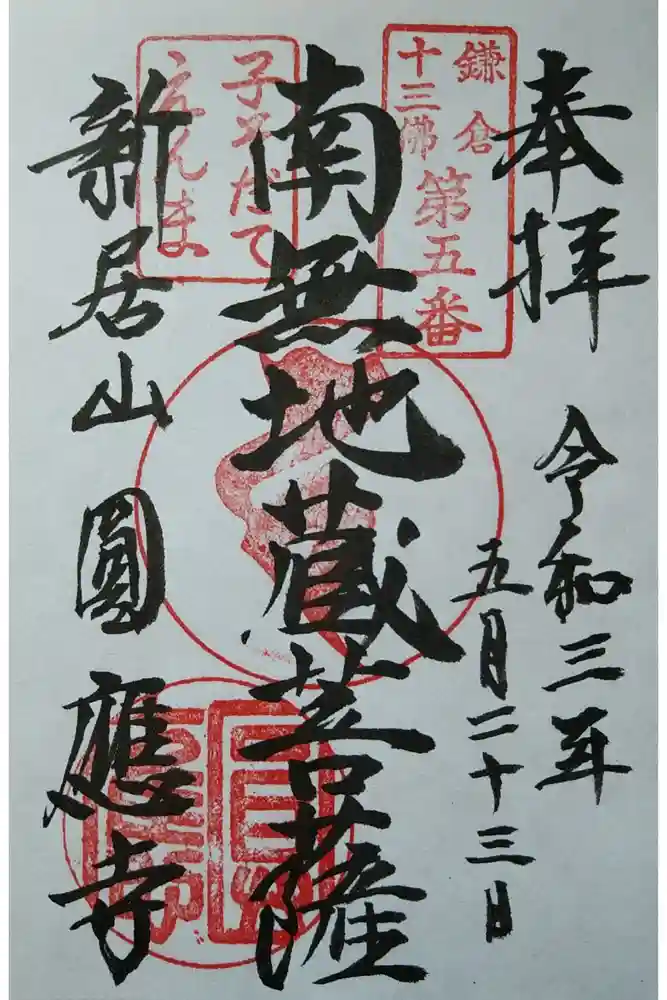 奉拝
令和三年
五月二十三日
鎌倉
十三佛
第五番
南無地蔵菩薩
子そだて
えんま
新居山 圓應寺